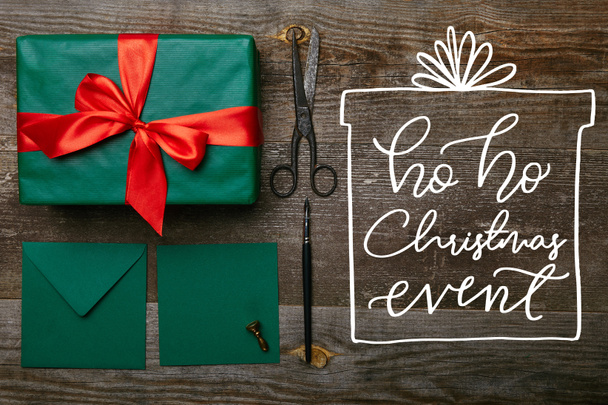 ho ho
Christmas
event